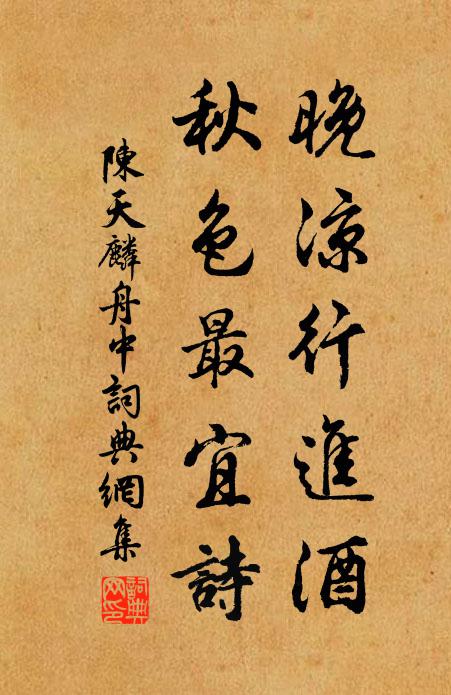 晚凉行進酒
秋色最宜詩
陳天麟舟中詞典網集
詞典网印